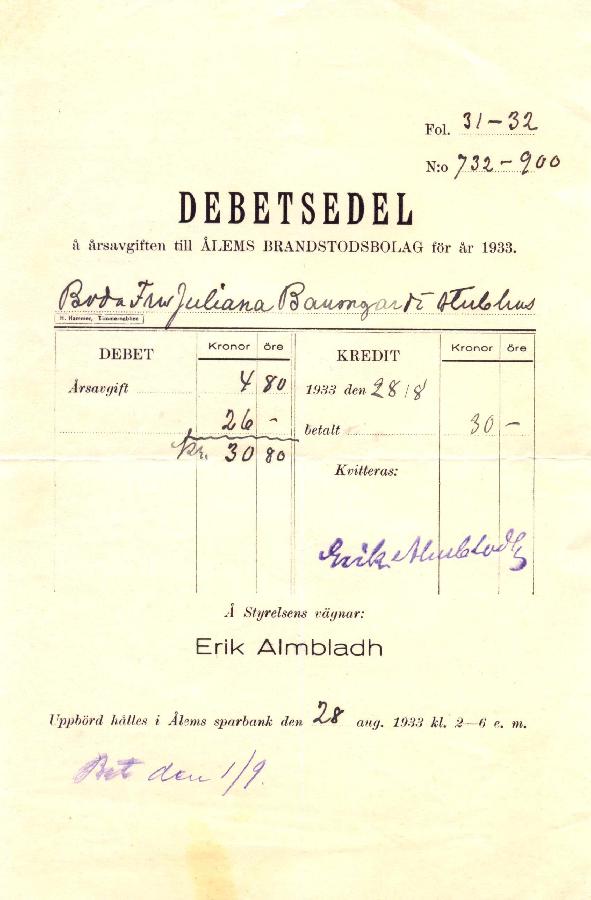 Fol. 31-32
N:o 732-900
DEBETSEDEL
å årsavgiften till ÅLEMS BRANDSTODSBOLAG för år 1933.
Boda Fru Juliana
H. Hammer, Timmernabben
DEBET Kronor öre KREDIT Kronor öre
Årsavgift 4 80 1933 den 28/8
26 - betalt 30 -
Kr. 30 80
Kvitteras:
Erik Almbladh
Å Styrelsens vägnar:
Erik Almbladh
Uppbörd hålles i Ålems sparbank den 28 aug. 1933 kl. 2—6 e. m.
Bet den 1/9.